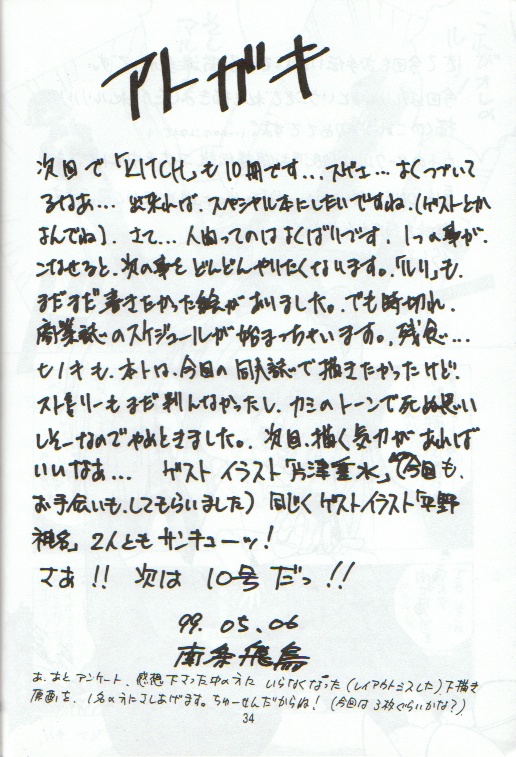 アトガキ
次回で「KITCH」も10冊です…スゲェ…よくつづいて
るなあ… 出来れば、スペシャル本にしたいですね。(ゲストとか
よんでね)。さて… 人間ってのはよくばりです。1つの事が
こなせると、次の事をどんどんやりたくなります。「ルリ」も
まだまだ書きたかった絵がありました。でも時切れ。
商業誌のスケジュールが始まっちゃいます。残念…
ヒノキも、本トは、今回の同人誌で描きたかったけど!
ストーリーもまだ判んなかったし、カミのトーンで死ぬ思い
しそーなのでやめときました。次回、描く気力があれば
いいなあ… ゲストイラスト「片津垂水」(今回も、
お手伝いも、してもらいました) 同じくゲストイラスト「平野
祖名」2人ともサンキューーッ!
さあ!! 次は 10号 だっ!!
99. 05. 06
南条飛鳥
あ、あと アンケート、感想下さった中の方に いらなくなった (レイアウトミスした) 下描き
原画を、1名の方にさしあげます。ちゅーせんだからね! (今回は3枚ぐらいかな?)
34